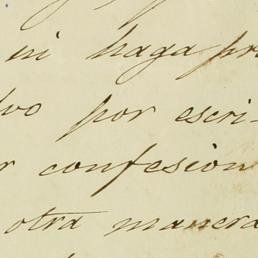 ni haga pr
vo por escri-
r confesion
otra manera